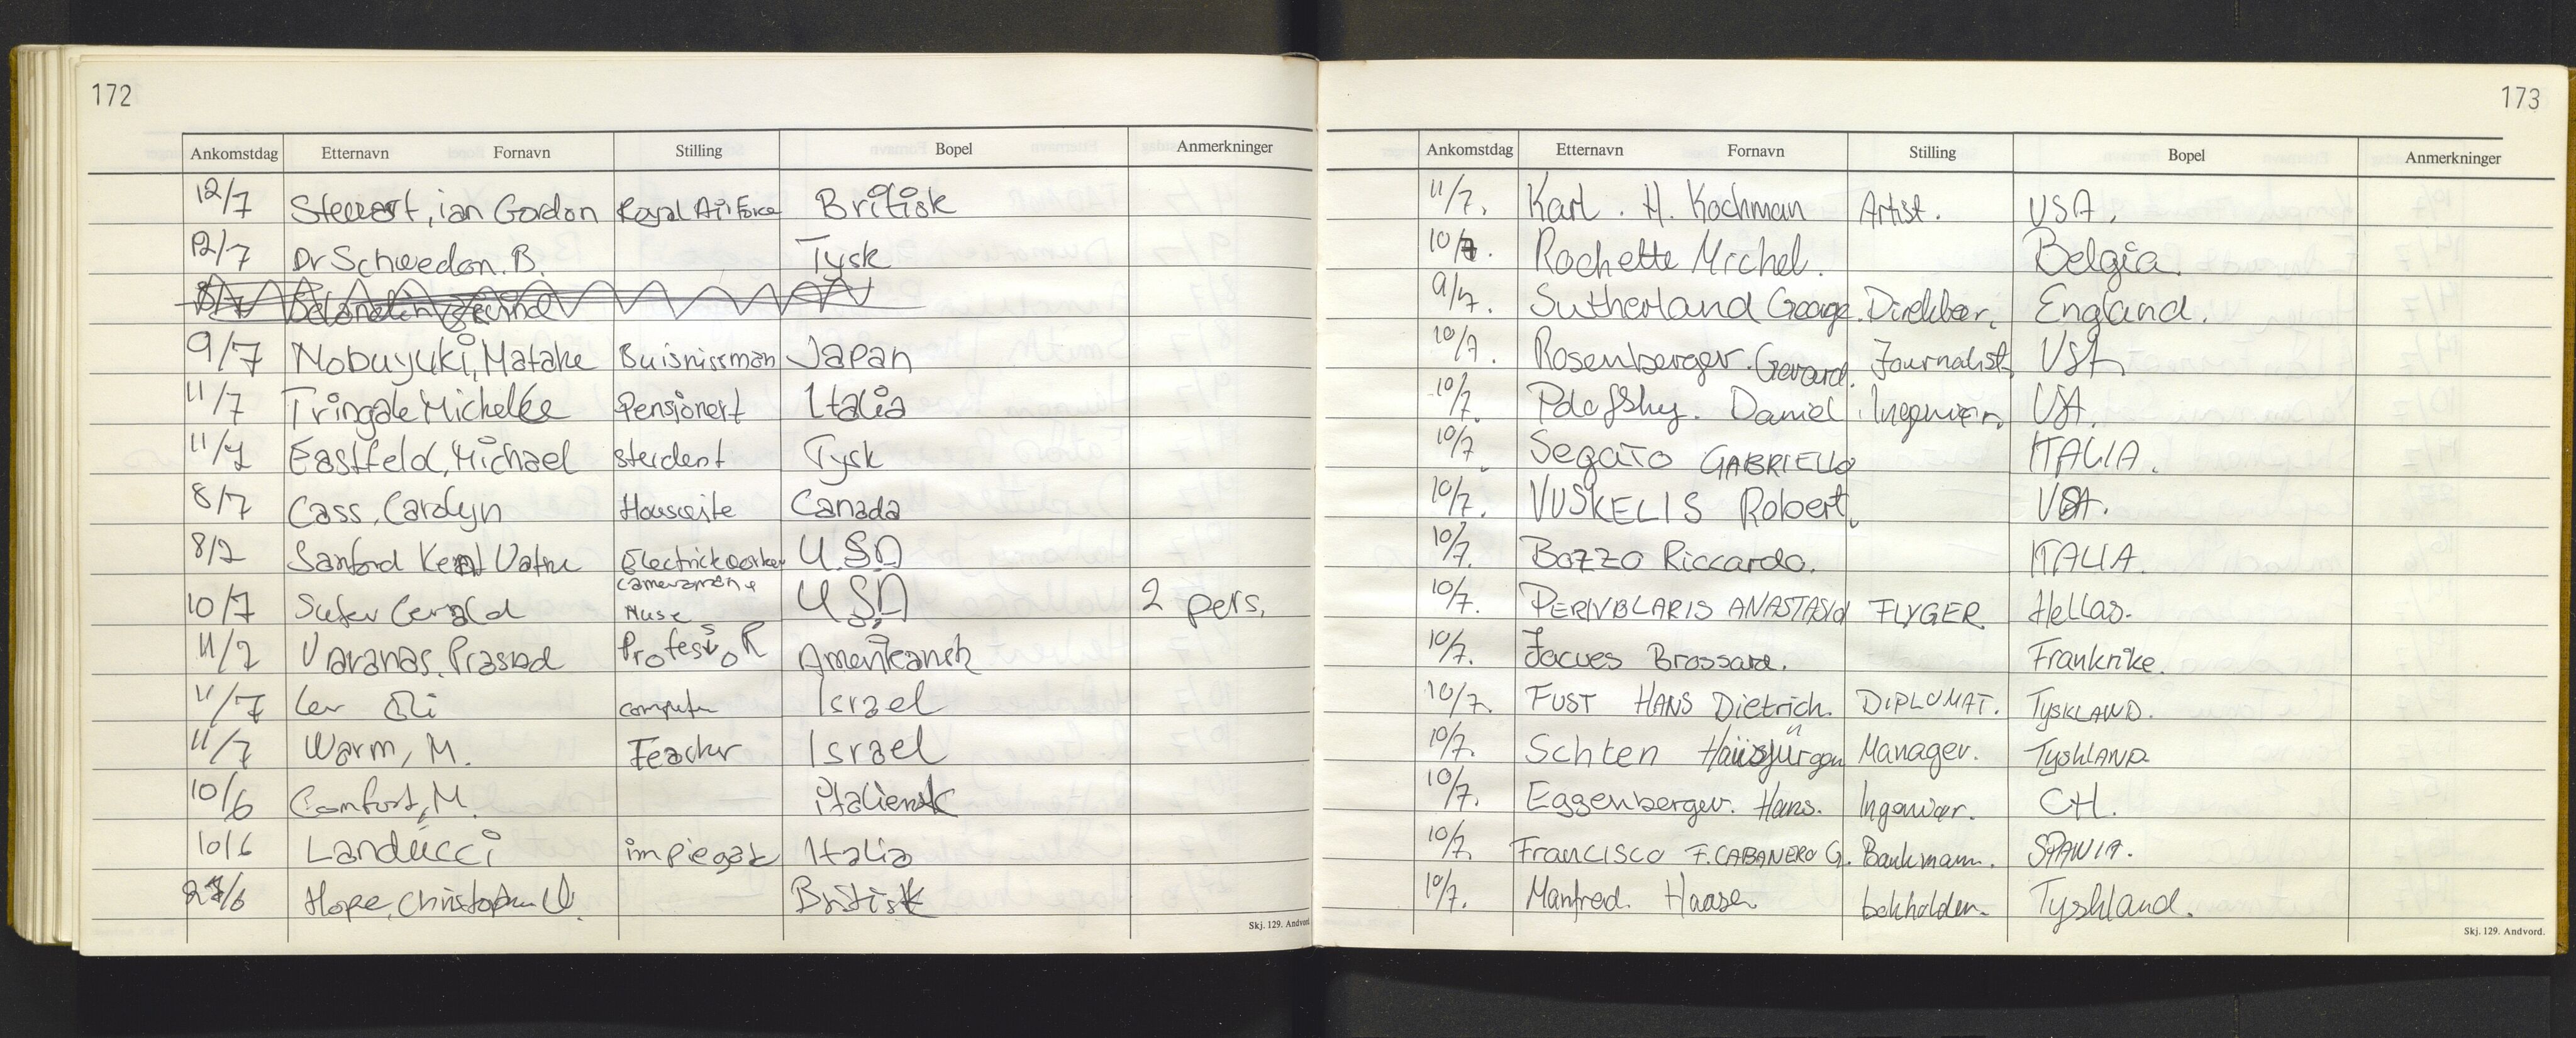 172
Ankomstdag Etternavn Fornavn Stilling Bopel Anmerkninger
12/7 Stewart, ian Gordon Royal Air Force Britisk
12/7 Dr Schwedan. B. Tysk
8/7
9/7 Nobuyuki, Matake Buisnissman Japan
11/7 Tringale Michele Pensjonert Italia
11/7 Eastfeld, Michael student Tysk
8/7 Cass, Carolyn Housewite Canada
8/7 Sanford Kent Electrickworker U.S.A
10/7 Suter Cerald cameraman + Nuse U.S.A 2 pers.
11/7 Varanas. Prasad Profesisor Amerikansk
11/7 Lev Oli computer Israel
11/7 Warm, M. Teacher Israel
10/6 Comfort, M. italiensk
10/6 Landucci impiegat Italia
27/6 Hope, Christopher Britisk
Skj. 129. Andvord.
173
Ankomstdag Etternavn Fornavn Stilling Bopel Anmerkninger
11/7. Karl. H. Kochman Artist. USA.
10/7. Rochette Michel. Belgia.
9/7. Sutherland George. Direktør. England.
10/7. Rosenberger. Gerard. Journalist. USA
10/7. Daniel. Ingeniør. USA.
10/7. Segato GABRIELLO ITALIA.
10/7. VUSKELIS Robert. USA.
10/7. Bozzo Riccardo. ITALIA.
10/7. PERIVBLARIS ANASTASIO FLYGER. Hellas.
10/7. Jacues Brossard. Frankrike.
10/7. FUST HANS Dietrich. DIPLOMAT. TYSKLAND.
10/7. Schten Hansjürgen Manager. TYSKLAND.
10/7. Eggenberger. Hans. Ingeniør. CH.
10/7. Francisco F. CABANERO G. Bankmann. SPANIA.
10/7. Manfred. Haase bokholder. Tyskland.
Skj. 129. Andvord.